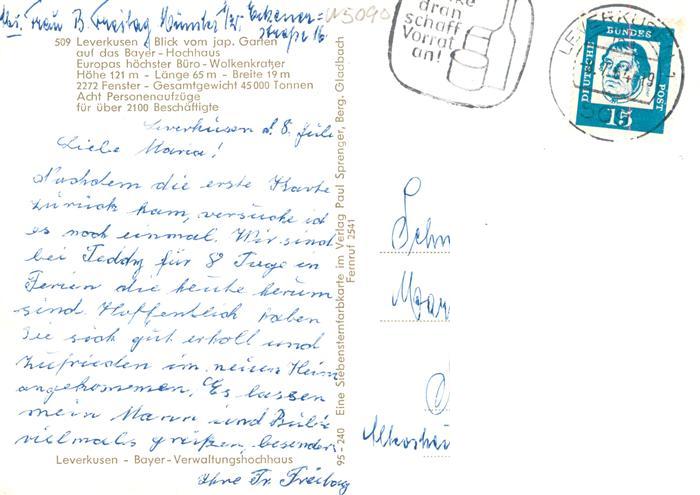 Abs. Frau B. Freitag Münster i/W. Eckener=
straße 16
W5090
509 Leverkusen / Blick vom jap. Garten
auf das Bayer-Hochhaus
Europas höchster Büro-Wolkenkratzer
Höhe 121 m - Länge 65 m - Breite 19 m
2272 Fenster - Gesamtgewicht 45000 Tonnen
Acht Personenaufzüge
für über 2100 Beschäftigte
Leverkusen d. 8. Juli
Liebe Maria!
Nachdem die erste Karte
zurück kam, versuche ich
es noch einmal. Wir sind
bei Teddy für 8 Tage in
Ferien die heute herum
sind. Hoffentlich haben
Sie sich gut erholt und
zufrieden im neuen Heim
angekommen. Es lassen
mein Mann und
vielmals grüßen, besonders
Ihre Fr. Freitag
Leverkusen - Bayer-Verwaltungshochhaus
95-240 Eine Siebensternfarbkarte im Verlag Paul Sprenger, Berg. Gladbach
Fernruf 2541
dran
schaff
Vorrat
an!
LEVERKUS
DEUTSCHE BUNDES POST
15
Lehn
Mar